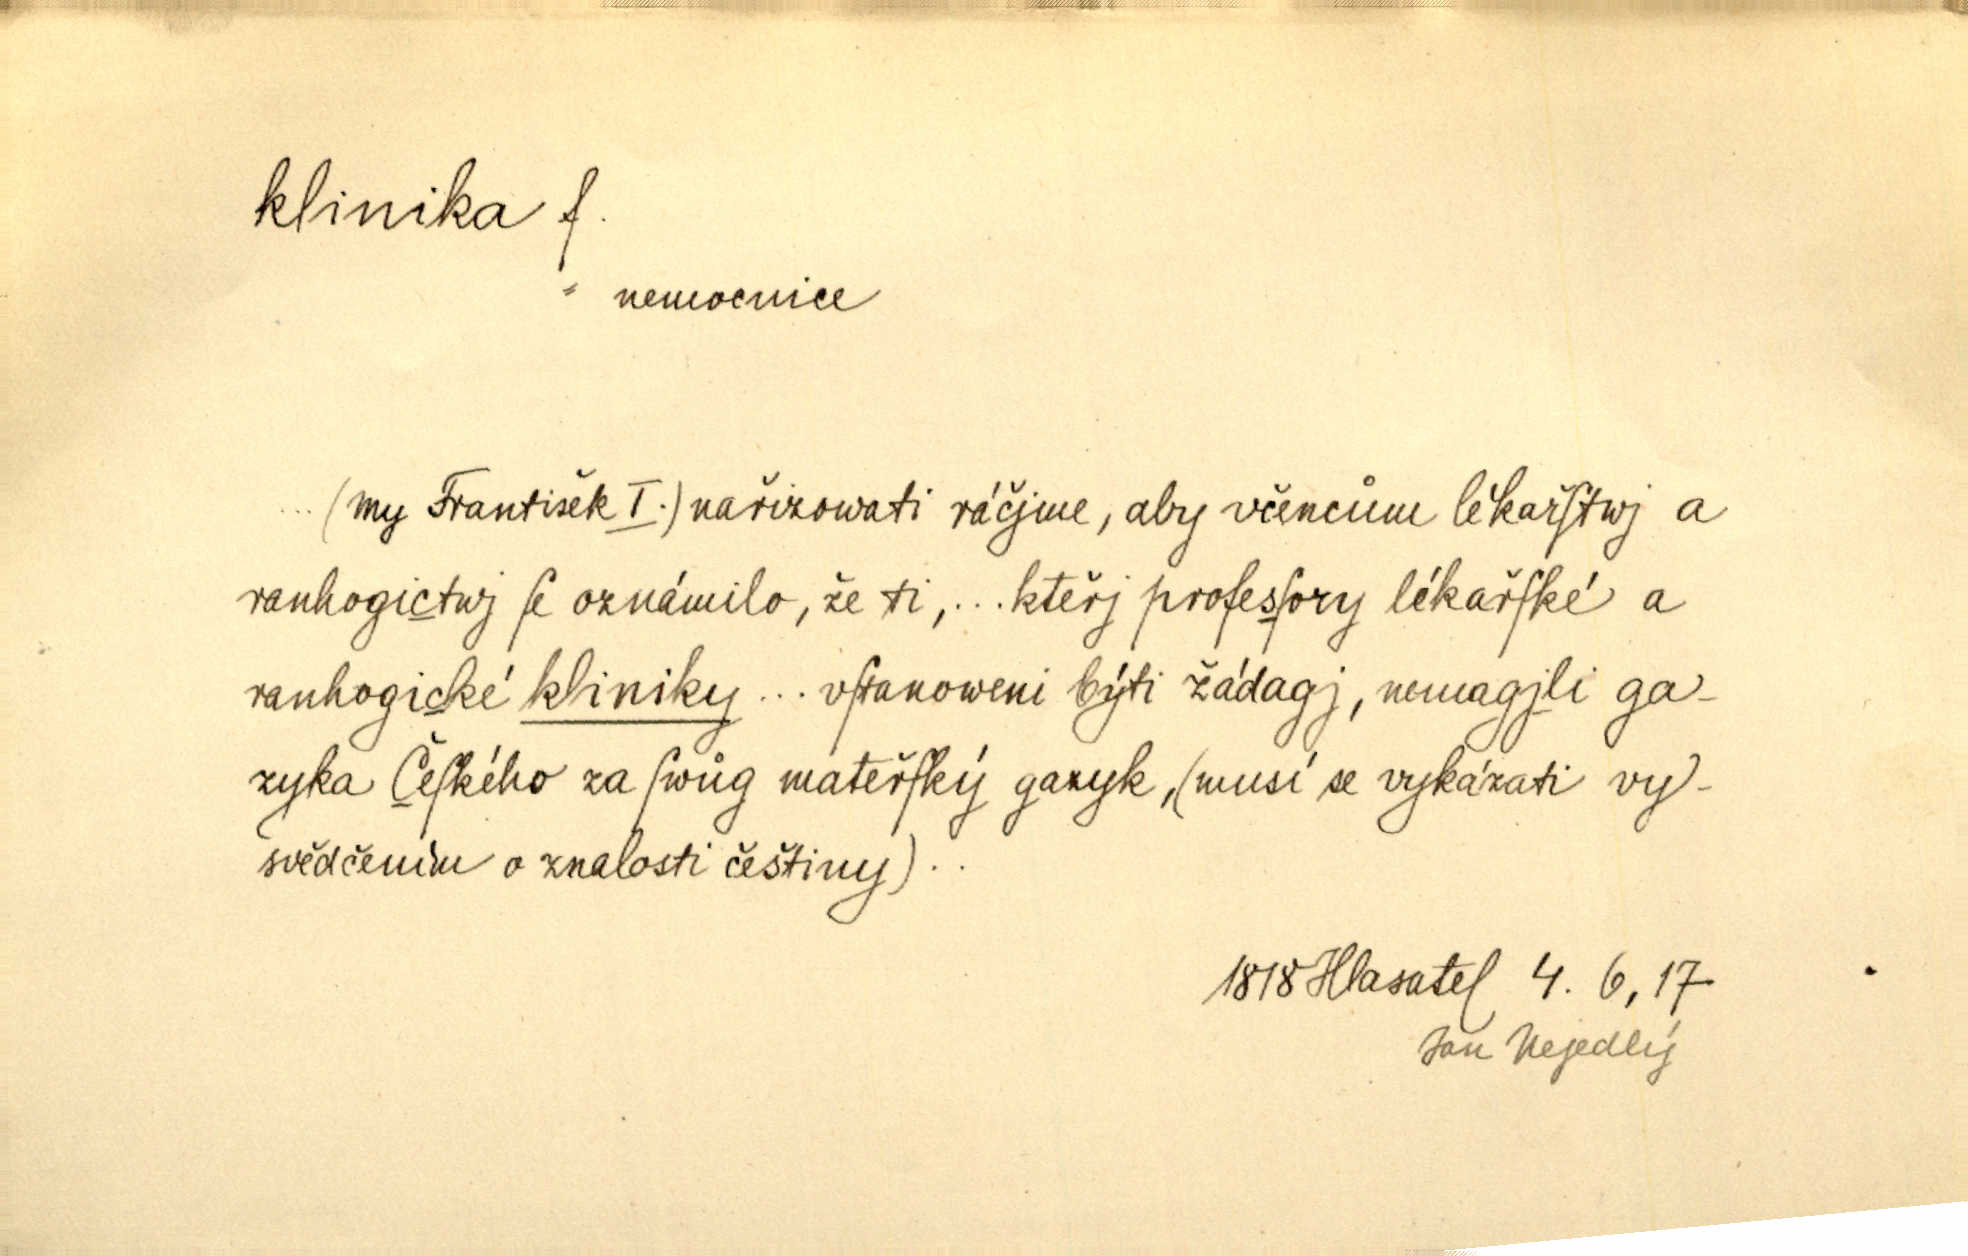 klinika f.
= nemocnice
...(my František I.) nařizowati ráčjme, aby včencům lékařſtwj a
ranhogictwj ſe oznámilo, že ti,... kteřj profesſory lékařſké a
ranhogické kliniky ... vſtanoweni býti žádagj, nemagjli ga-
zyka Čeſkého za ſwůg mateřſký gazyk, (musí se vykázati vy-
svědčením o znalosti češtiny)..
1818 Hlasatel 4. 6, 17
Jan Nejedlý